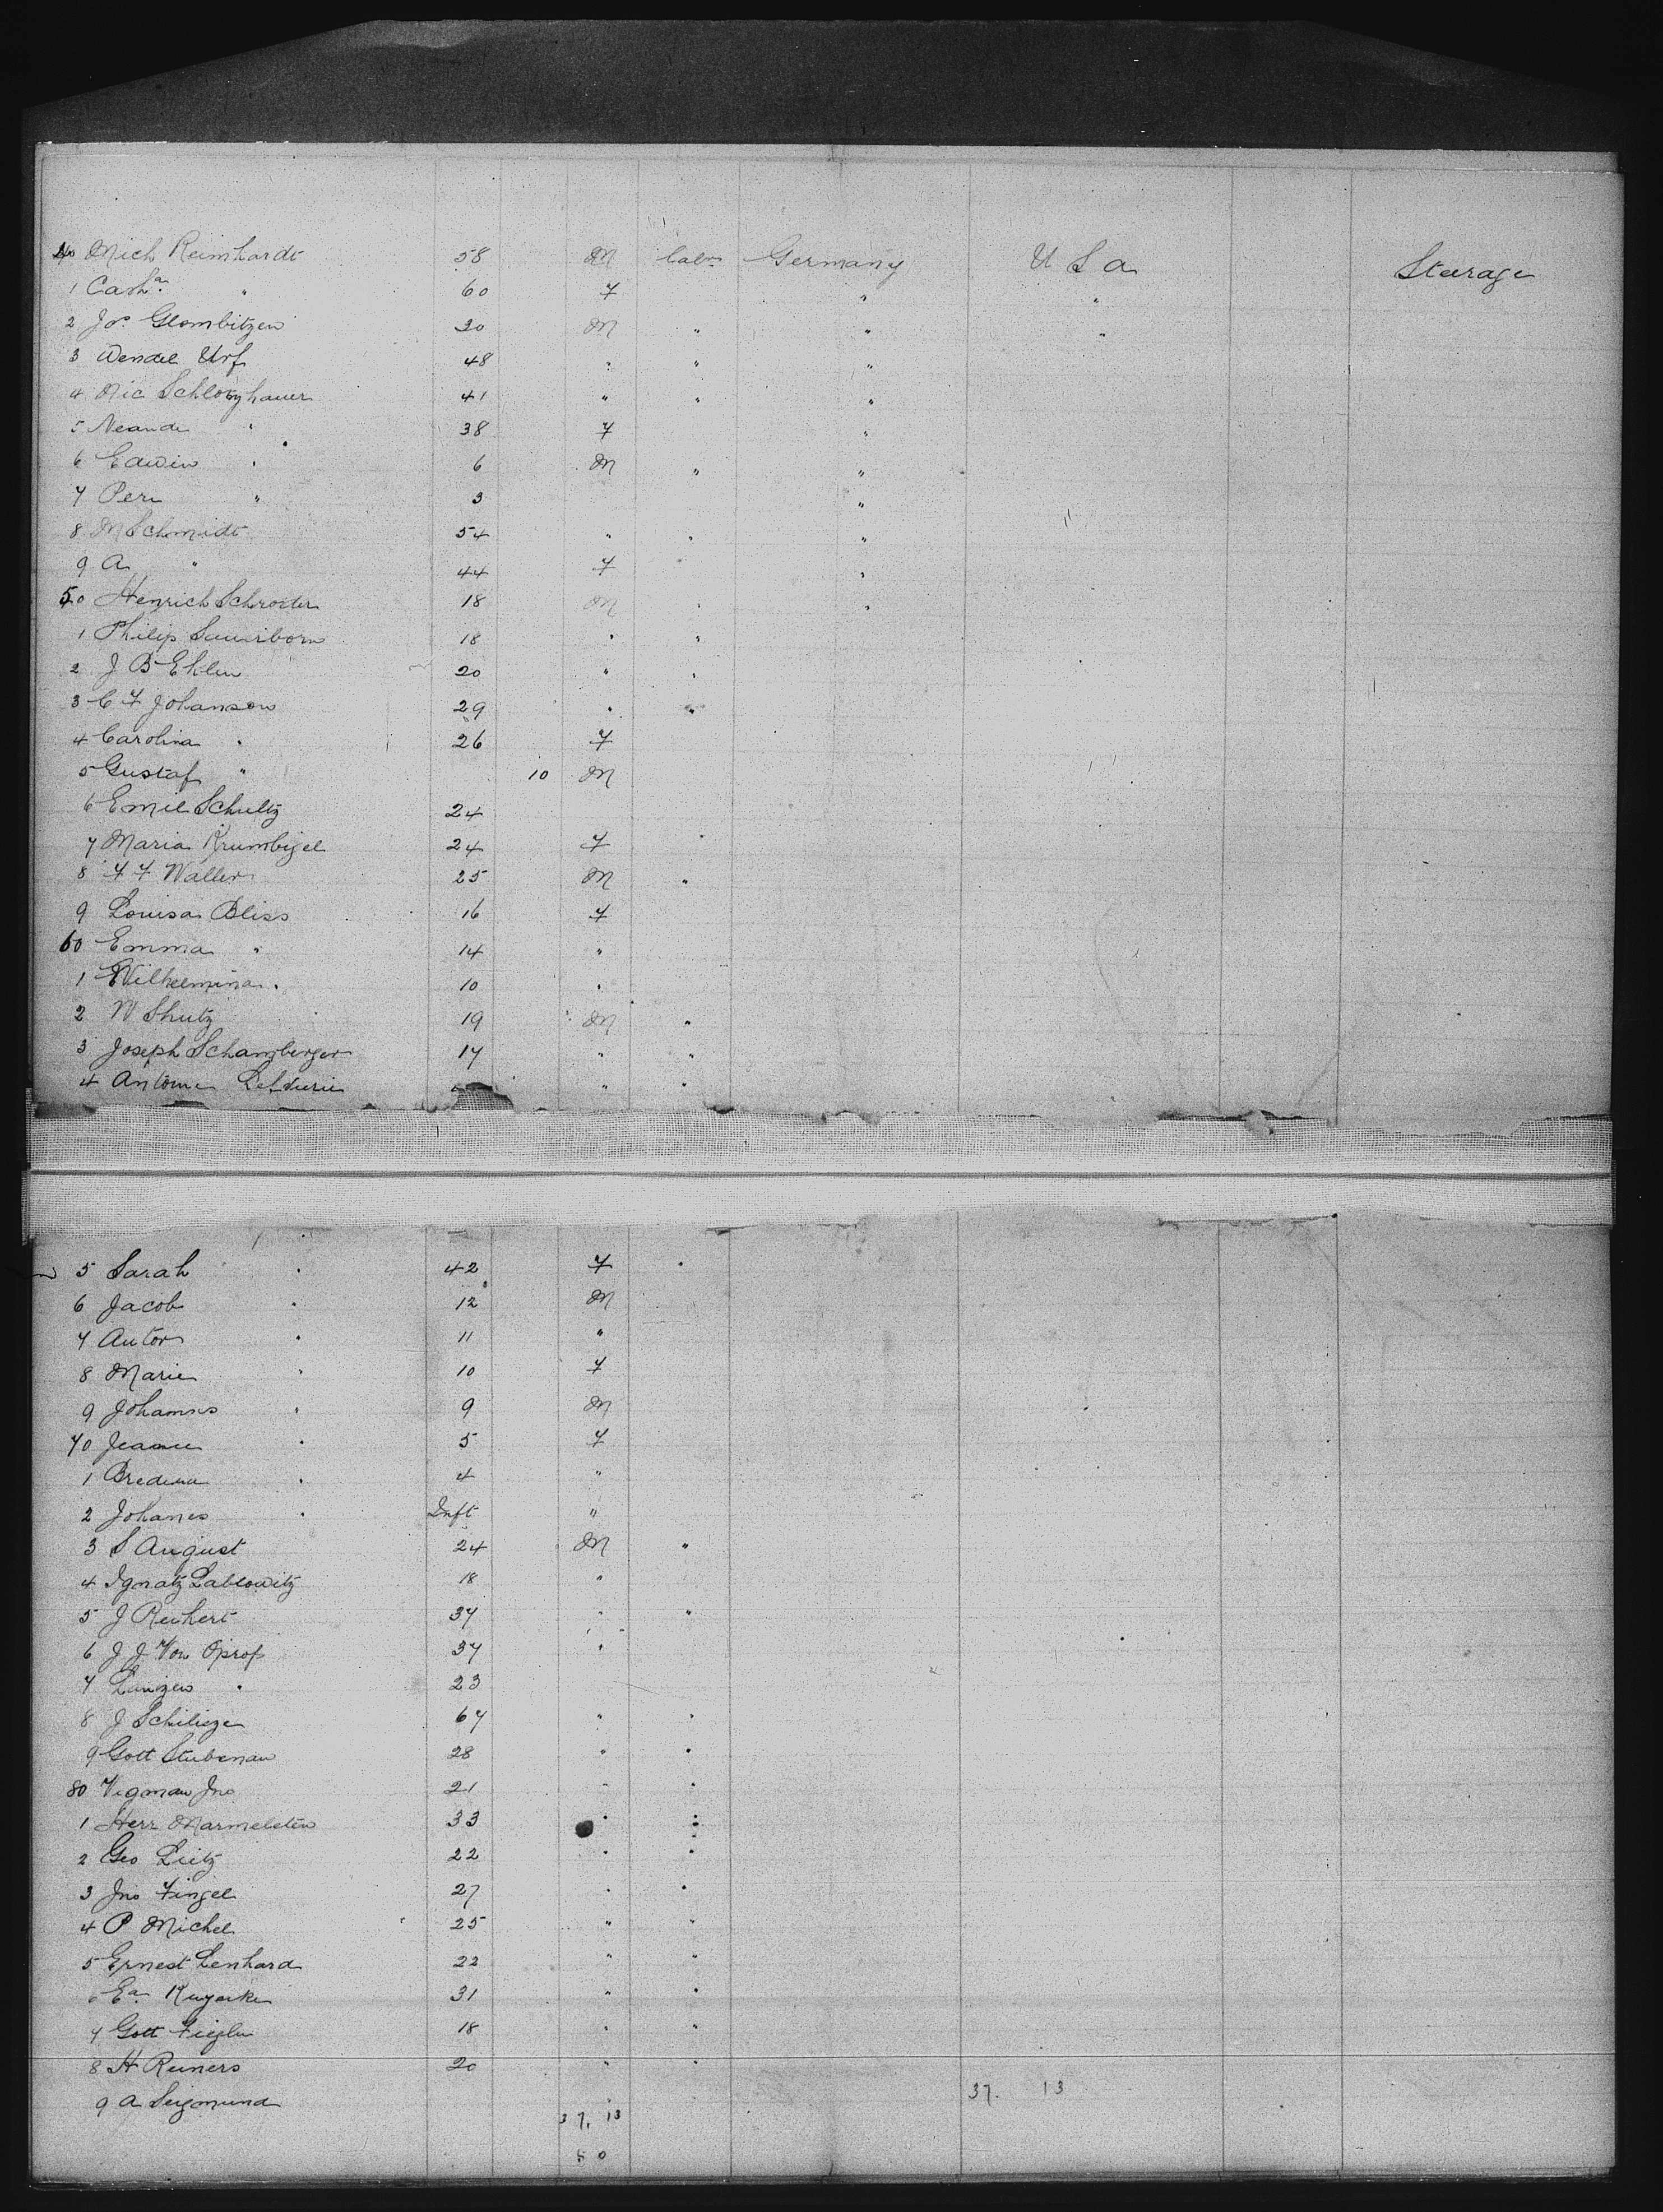 40 Mich Reinhardt 58 M Labr Germany U S a Steerage
1 Cath.a " 60 F " "
2 Jos. Glombitzen 20 M " " "
3 Wendel Urf 48 " " "
4 Nic Schlotzhauer 41 " " "
5 " 38 F "
6 Edwin " 6 M " "
7 Peri " 3 "
8 M Schmidt 54 " " "
9 A " 44 F "
50 Henrich Schroder 18 M " "
1 Philip Saueiborn 18 " "
2 J B Ehlen 20 " "
3 C F Johanson 29 " "
4 Carolina " 26 F
5 Gustaf " 10 M
6 Emil Schultz 24
7 Maria Krumbigel 24 F "
8 F F Waller 25 M "
9 Louisa Bliss 16 F
60 Emma " 14 "
1 Wilhelmina " 10 "
2 W Shutz 19 M "
3 Joseph Schamberger 17 " "
4 Antoine " "
5 Sarah " 42 F "
6 Jacob " 12 M
7 Anton " 11 "
8 Marie " 10 F
9 Johannes " 9 M
70 Jeanne " 5 F
1 " 4 "
2 Johanes " Inft "
3 S August 24 M "
4 Ignatz Lablowitz 18 "
5 J Reichert 37 " "
6 J J Von Oprop 37 "
7 " 23
8 J Schilige 67 " "
9 Gott Stubenau 28 " "
80 Vigman Jno 21 " "
1 Herr Marmelstein 33 " "
2 Geo Lietz 22 " "
3 Jno Fingel 27 " "
4 P Michel 25 " "
5 Ernest Lenhard 22 " "
6 Ed. 31 " "
7 Gott Fiegler 18 " "
8 H Reiners 20 " "
9 A Seigmund
37. 13
37. 13
50